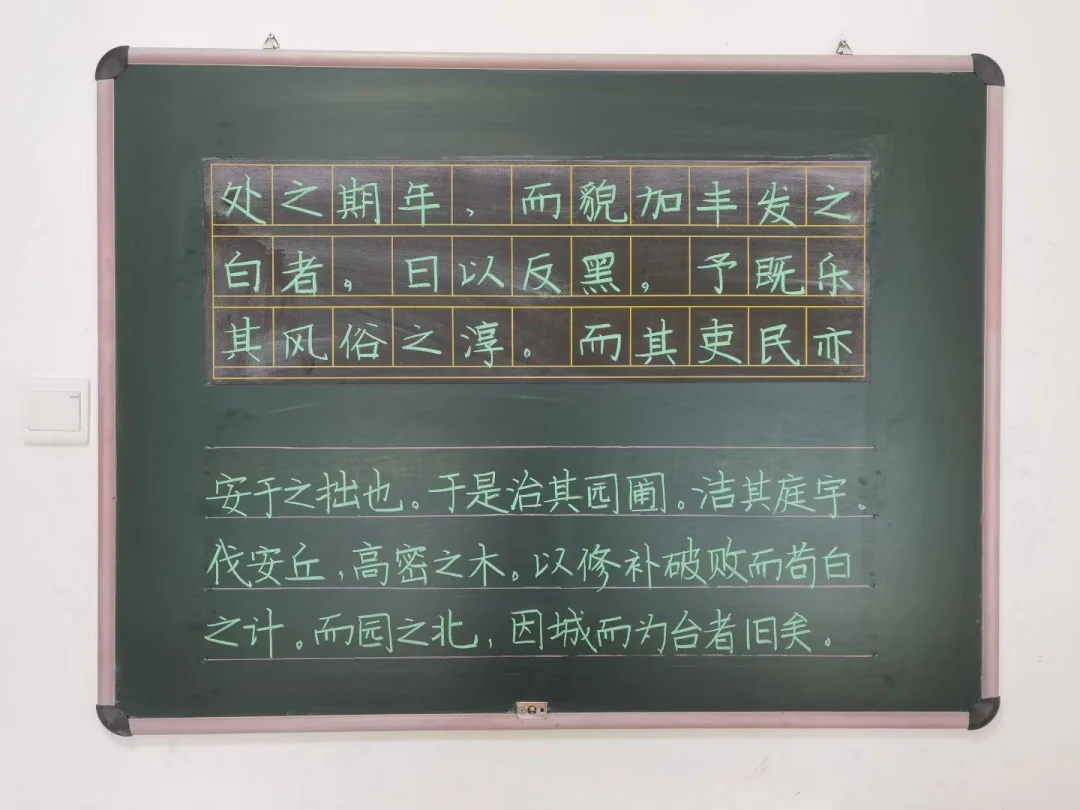 处之期年，而貌加丰发之
白者。日以反黑。予既乐
其风俗之淳。而其吏民亦
安于之拙也。于是治其园圃。洁其庭宇。
伐安丘，高密之木。以修补破败而苟白
之计。而园之北，因城而为台者旧矣。